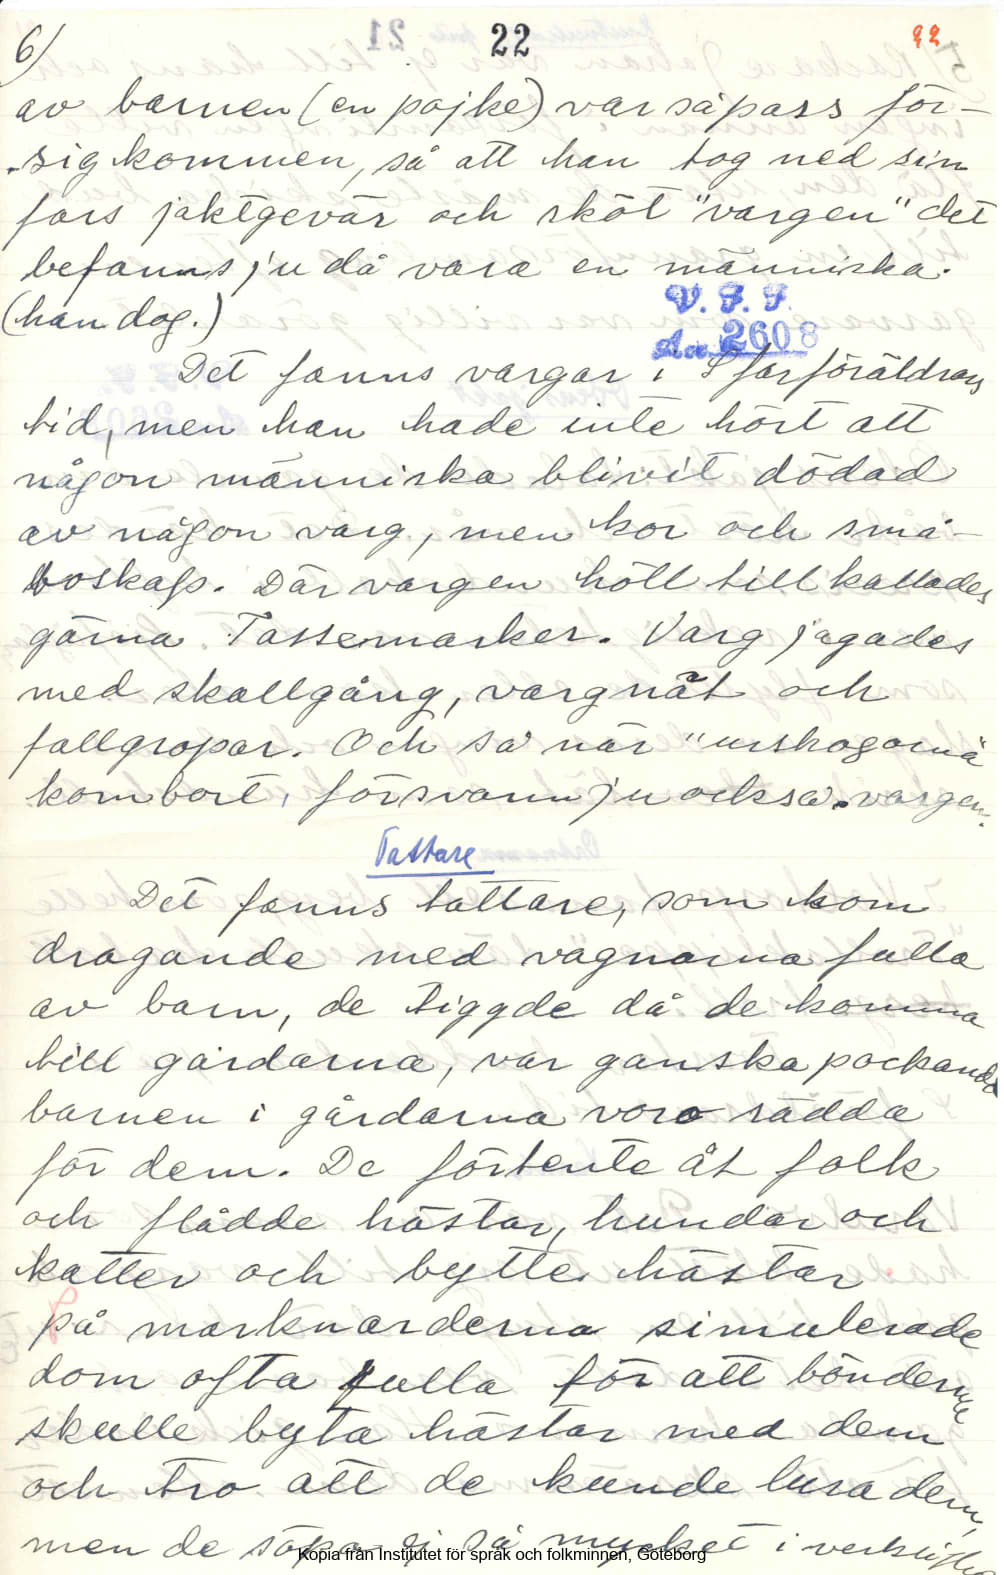 6) 22 22
av barnen (en pojke) var såpass för-
sigkommen, så att han tog ned sin
fars jaktgevär och sköt "vargen" det
befanns ju då vara en människa.
(han dog.)
V. F. F.
2608
Det fanns vargar i S farföräldrars
tid, men han hade inte hört att
någon människa blivit dödad
av någon varg, men kor och små-
boskap. Där vargen höll till kallades
gärna Tassemarker. Varg jagades
med skallgång, vargnät och
fallgropar. Och så när "urskogarna"
kom bort, försvann ju också vargen.
Tattare
Det fanns tattare, som kom
dragande med vagnarna fulla
av barn, de tiggde då de komma
till gårdarna, var ganska pockande
barnen i gårdarna voro rädda
för dem. De förtente åt folk
och flådde hästar, hundar och
katter och bytte hästar
på marknaderna simulerade
dom ofta fulla för att bönderna
skulle byta hästar med dem
och tro att de kunde lura dem,
men de söpo ej så mycket i
Kopia från Institutet för språk och folkminnen, Göteborg